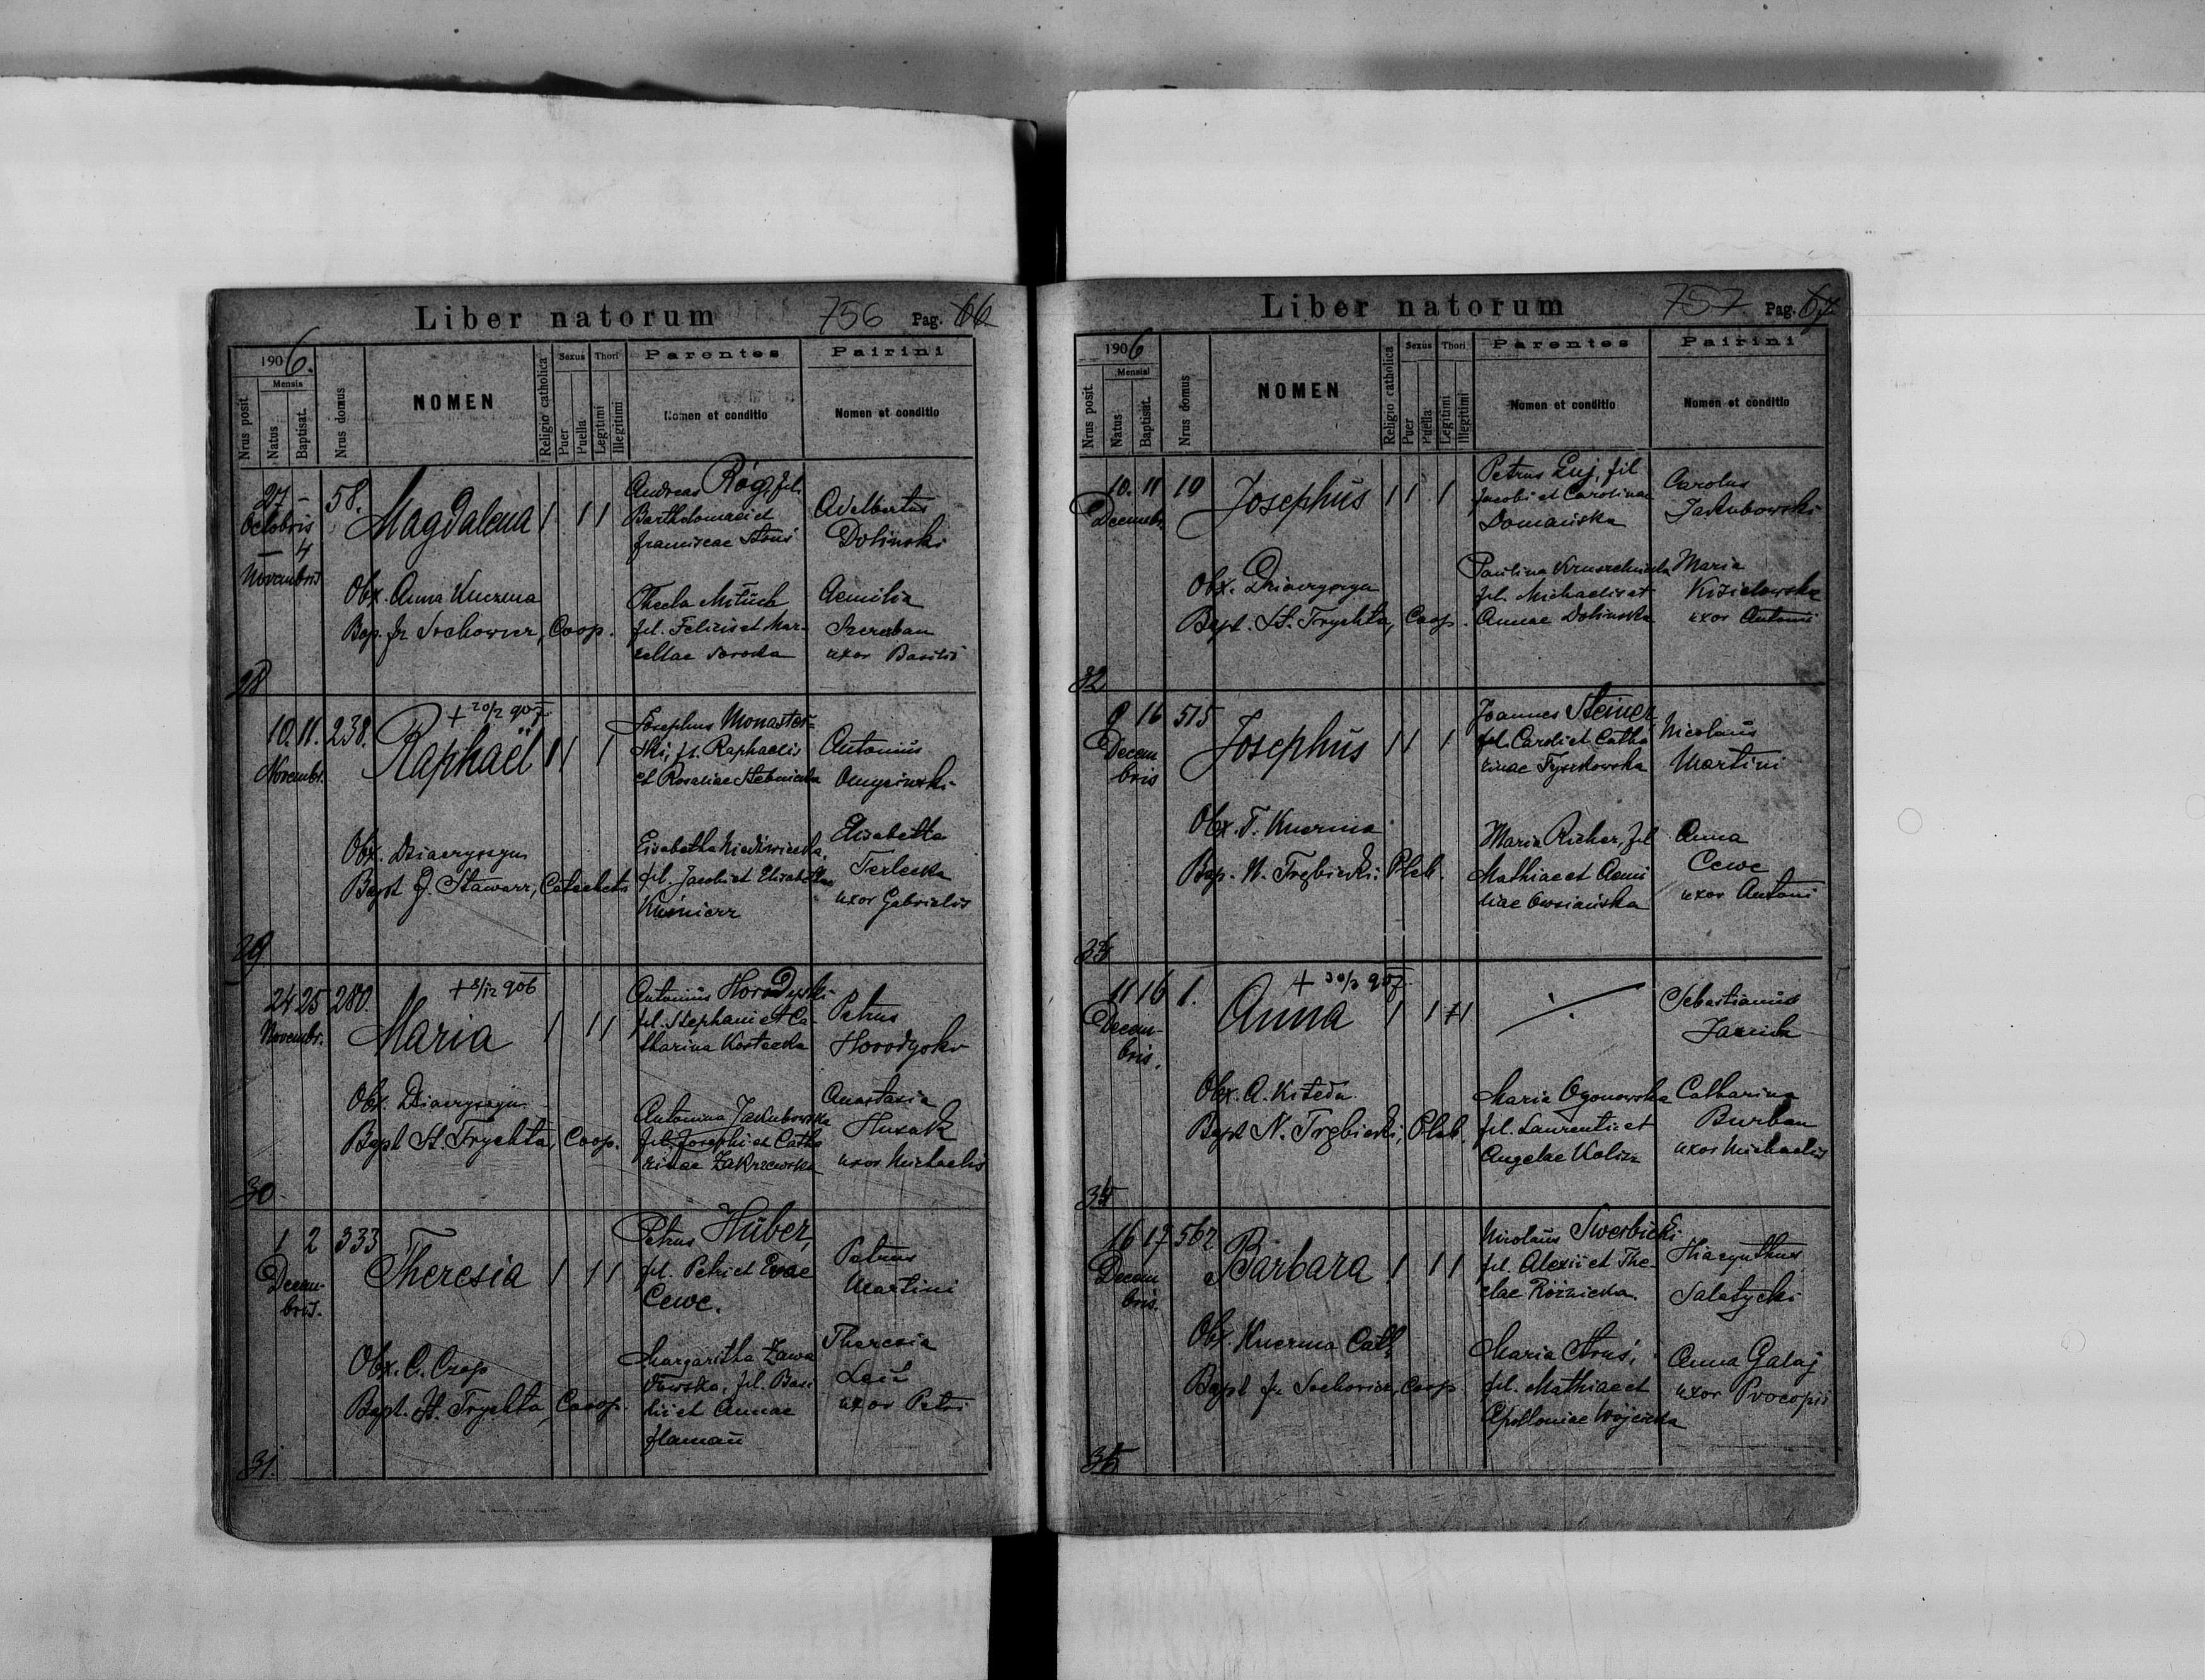 Liber natorum 756 Pag. 66
1906.
Mensis
Nrus posit.
Natus
Baptisat.
Nrus domus
NOMEN
Religio catholica
Sexus
Puer
Puella
Thori
Legitimi
Illegitimi
Parentes
Nomen et conditio
Patrini
Nomen et conditio
27 -
Octobris
- 4
Novembris
58.
Magdalena
Obx. Anna Kuczma
Bap. fr Sochowicz, Coop.
Andreas Róg, fil.
Bartholomaei et
Franciscae Struś
Thecla Mituch
fil. Felicis et Mar-
cellae Soroka
Adelbertus
Dolinski
Aemilia
Szereban
uxor Basilii
28
10. 11.
Novembr.
238.
+ 20/2 907
Raphaël
Obx. Dziaczyszyn
Bapt J. Stawarz, Catecheta
Josephus Monaster-
ski, fil. Raphaelis
et Rosaliae Stebnicka
Elisabetha Niedźwiecka,
fil. Jacobi et Elisabethae
Kuśnierz
Antonius
Elisabetha
Terlecka
uxor Gabrielis
29
24 25
Novembr.
280.
+ 8/12 906
Maria
Obx. Dziaczyszyn
Bapt St. Trychta, Coop.
Antonius Horodyski
fil. Stephani et Ca-
tharina Kostecka
Antonina Jakubowska
fil. Josephi et Catha
rinae Zakrzewska
Petrus
Horodyski
Anastasia
Husak
uxor Michaelis
30
1 2
Decem-
bris.
333
Theresia
Obx. C. Czop
Bapt. St. Trychta, Coop.
Petrus Hüber,
fil. Petri et Evae
Cewe.
Margaritha Zawa
dowska, fil. Basi
lii et Annae
Haman
Petrus
Martini
Theresia
Leis
uxor Petri
31.
Liber natorum 757. Pag. 67
1906
Mensis
Nrus posit.
Natus
Baptisat.
Nrus domus
NOMEN
Religio catholica
Sexus
Puer
Puella
Thori
Legitimi
Illegitimi
Parentes
Nomen et conditio
Patrini
Nomen et conditio
10. 11
Decembr.
19
Josephus
Obx. Dziaczyszyn
Bapt. St. Trychta, Coop.
Petrus Luj, fil
Jacobi et Carolinae
Domańska
Paulina Kruszelnicka
fil. Michaelis et
Annae Dolinska
Carolus
Jakubowski
Maria
Kisielowska
uxor Antonii
32
9 16
Decem
bris
515
Josephus
Obx. T. Kuczma
Bap. N. Trębicki Pleb.
Joannes Steiner
fil. Caroli et Catha
rinae Tyszkowska
Maria Richer, fil
Mathiae et Aemi
liae Owsiańska
Nicolaus
Martini
Anna
Cewe
uxor Antoni
33
11 16
Decem-
bris.
1.
+ 30/3 907.
Anna
Obx. A. Kiteda
Bapt N. Trębicki, Pleb.
Maria Ogonowska
fil. Laurentii et
Angelae Kolisz
Sebastianus
Catharina
Burban
uxor Michaelis
34
16 17
Decem
bris.
562
Barbara
Obx. Kuczma Cath
Bapt fr Sochowicz, Coop
Nicolaus Swerbicki
fil. Alexii et The-
clae Różnicka.
Maria Struś,
fil. Mathiae et
Apolloniae Wójcicka
Hiacynthus
Salatycki
Anna Galaj
uxor Procopii
35